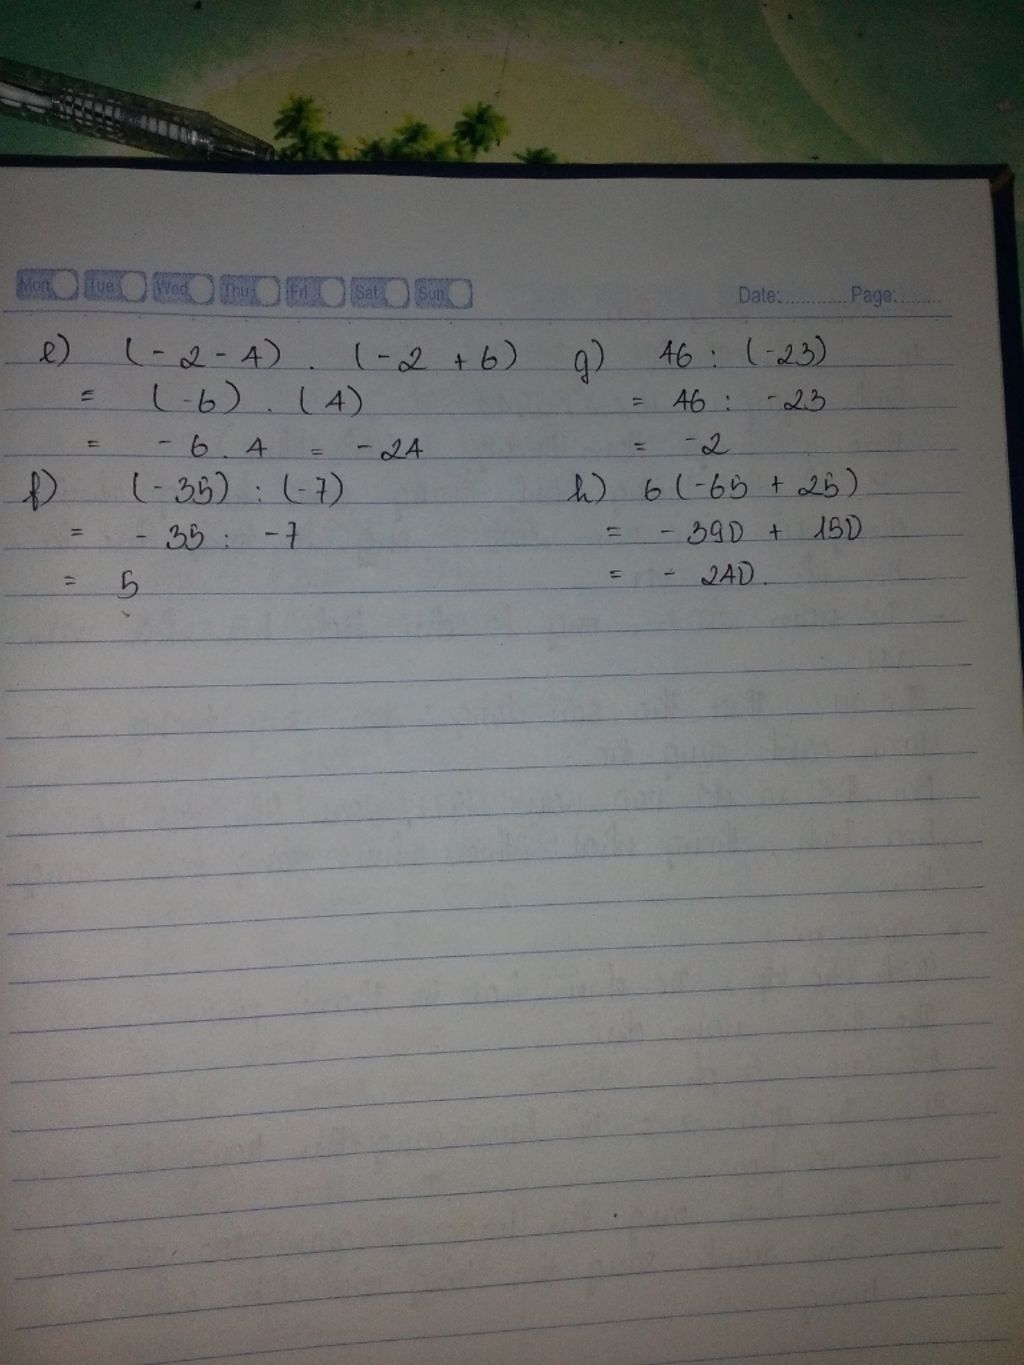 Mon Tue Wed Thu Fri Sat Sun
Date:............Page:........
e) (-2-4) . (-2+6)
= (-6) . (4)
= -6 . 4 = -24
f) (-35) : (-7)
= -35 : -7
= 5
g) 46 : (-23)
= 46 : -23
= -2
h) 6(-65 + 25)
= -390 + 150
= - 240.